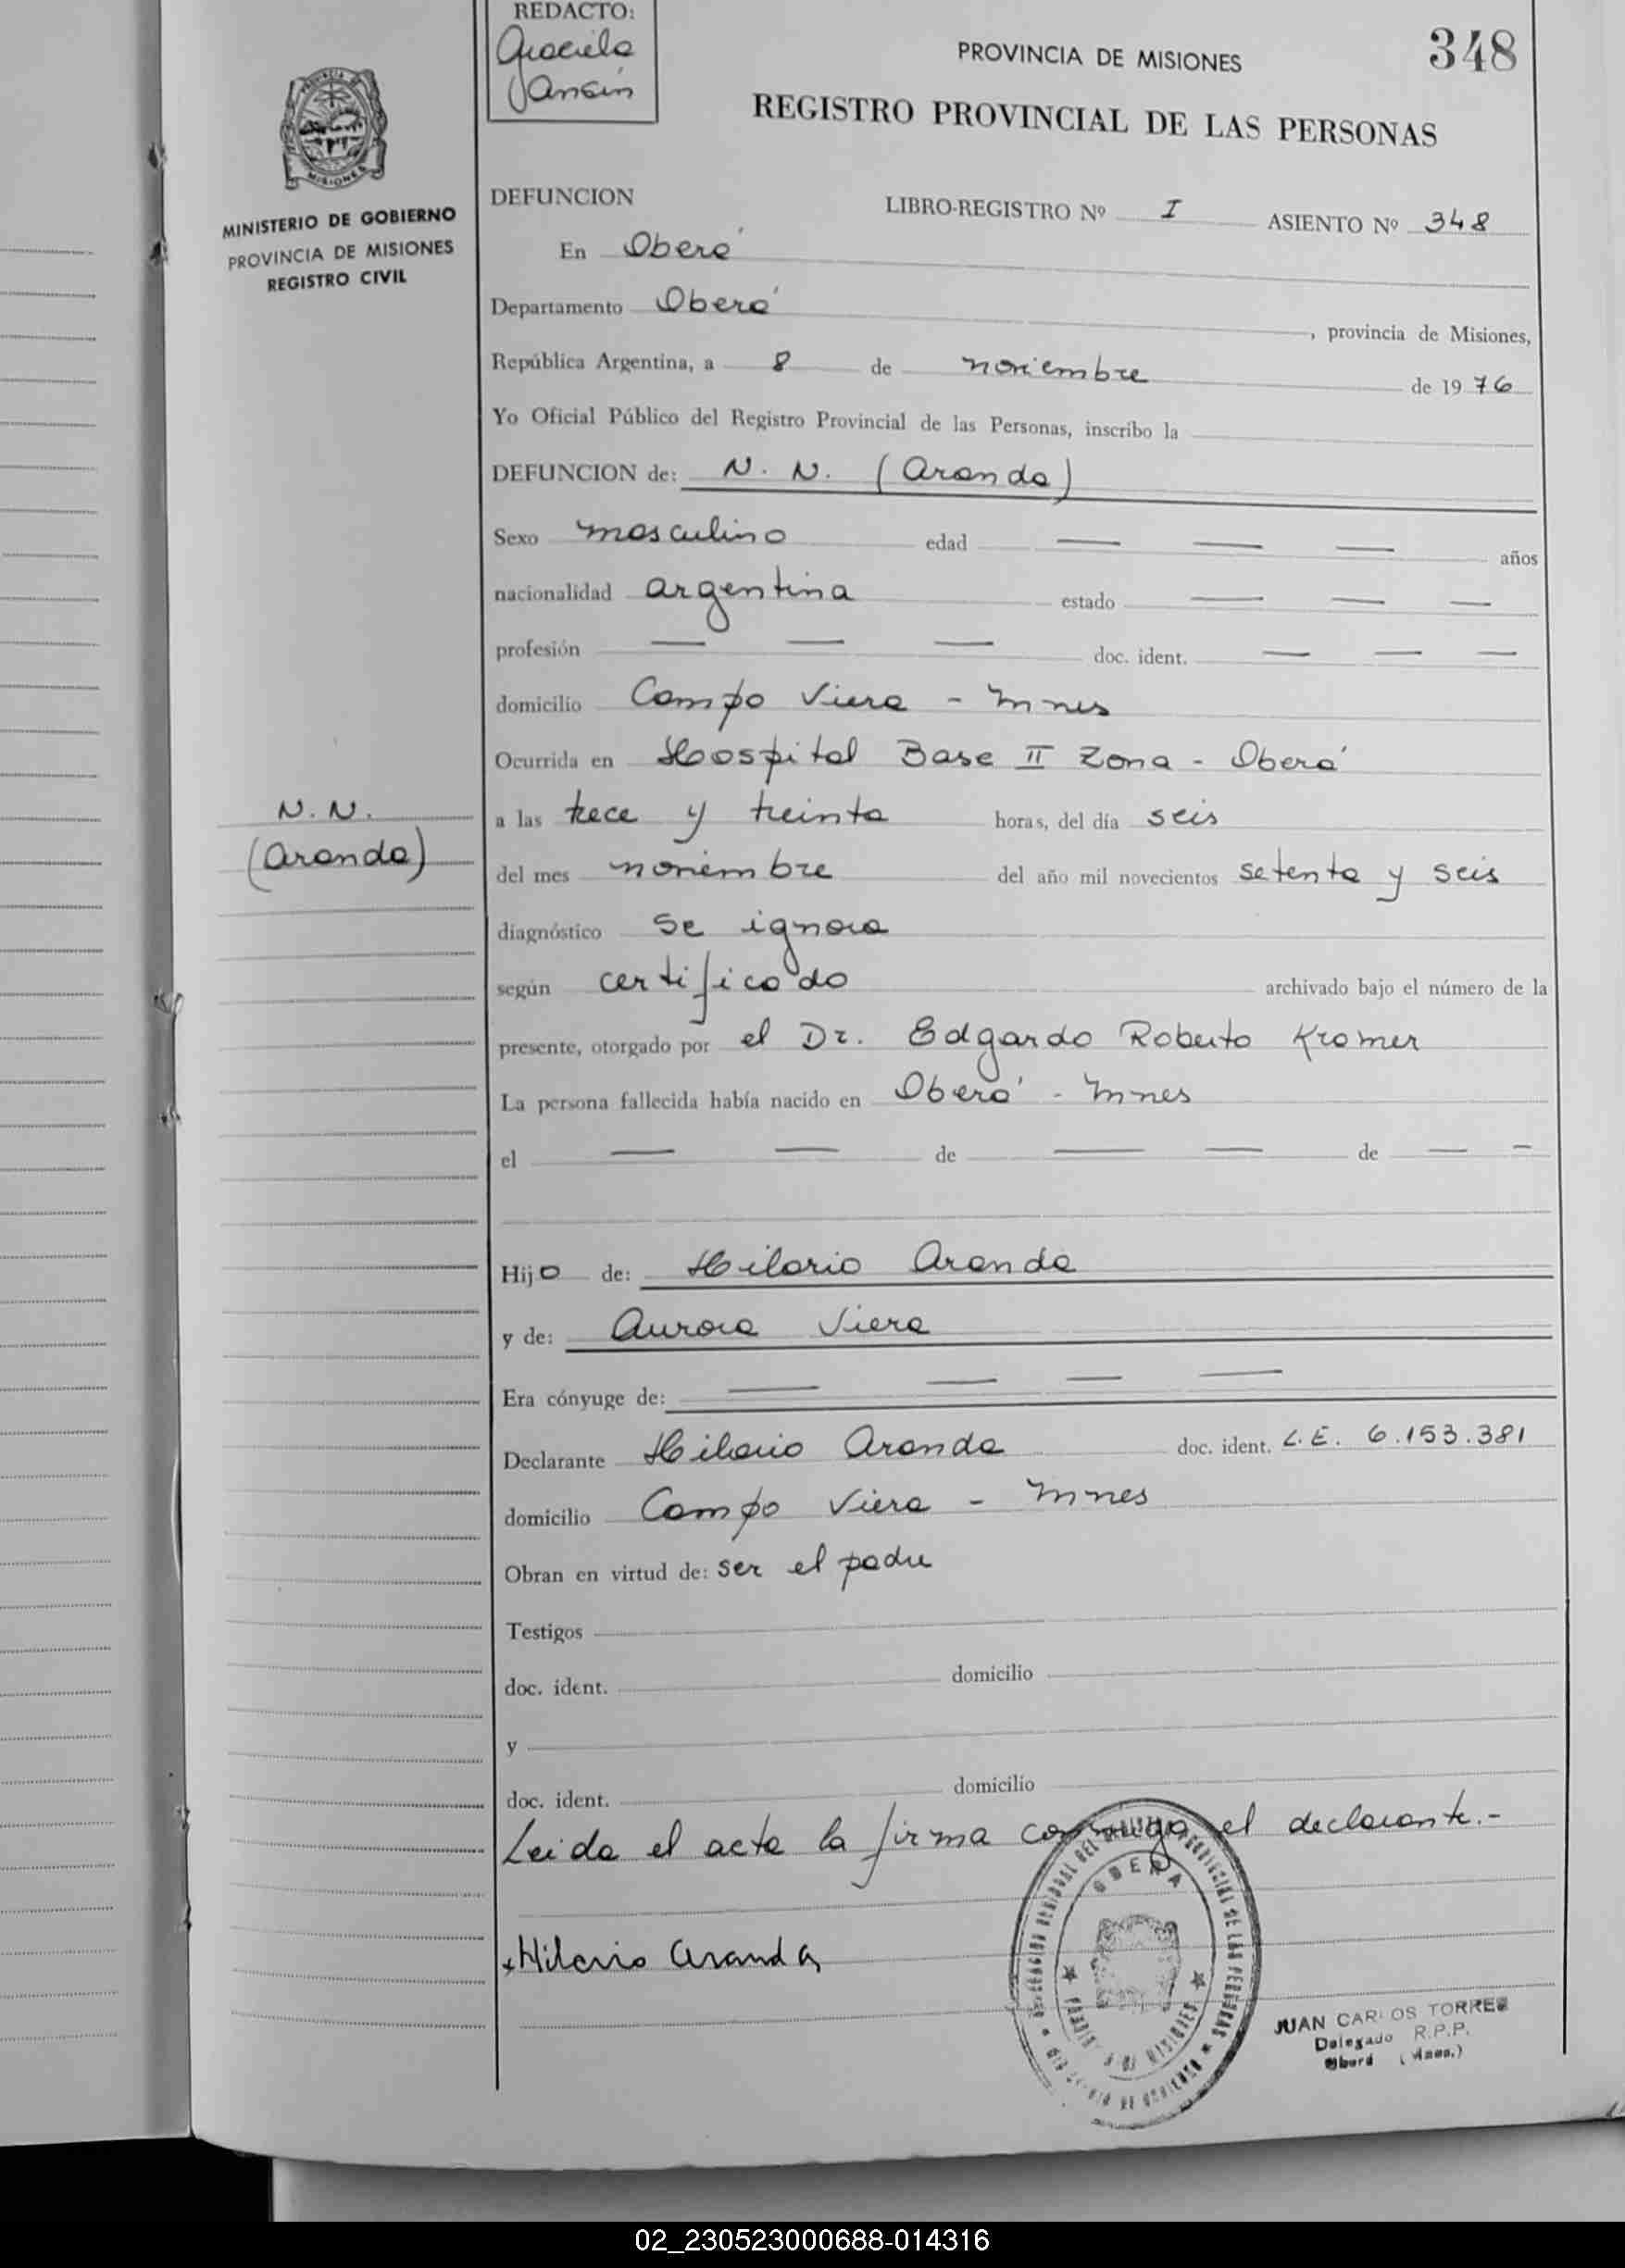 REDACTO:
Graciela
Jansin
PROVINCIA DE MISIONES
348
REGISTRO PROVINCIAL DE LAS PERSONAS
PROVINCIA DE
MISIONES
MINISTERIO DE GOBIERNO
PROVINCIA DE MISIONES
REGISTRO CIVIL
DEFUNCION
LIBRO-REGISTRO Nº I ASIENTO Nº 348
En Oberá
Departamento Oberá, provincia de Misiones,
República Argentina, a 8 de noviembre de 1976
Yo Oficial Público del Registro Provincial de las Personas, inscribo la
DEFUNCION de: N. N. (Aranda)
Sexo masculino edad — — — años
nacionalidad argentina estado — — —
profesión — — — doc. ident. — — —
domicilio Campo Viera - Mnes
Ocurrida en Hospital Base II Zona - Oberá
N. N.
(Aranda)
a las trece y treinta horas, del día seis
del mes noviembre del año mil novecientos setenta y seis
diagnóstico se ignora
según certificado archivado bajo el número de la
presente, otorgado por el Dr. Edgardo Roberto Kromer
La persona fallecida había nacido en Oberá - Mnes
el — — de — — de — —
Hijo de: Hilario Aranda
y de: Aurora Viera
Era cónyuge de: — — — —
Declarante Hilario Aranda doc. ident. L.E. 6.153.381
domicilio Campo Viera - Mnes
Obran en virtud de: ser el padre
Testigos
doc. ident. domicilio
y
doc. ident. domicilio
Leida el acta la firma conmigo el declarante.-
Hilario Aranda
OBERA
JUAN CARLOS TORRES
Delegado R.P.P.
Oberá (Mnes.)
02_230523000688-014316